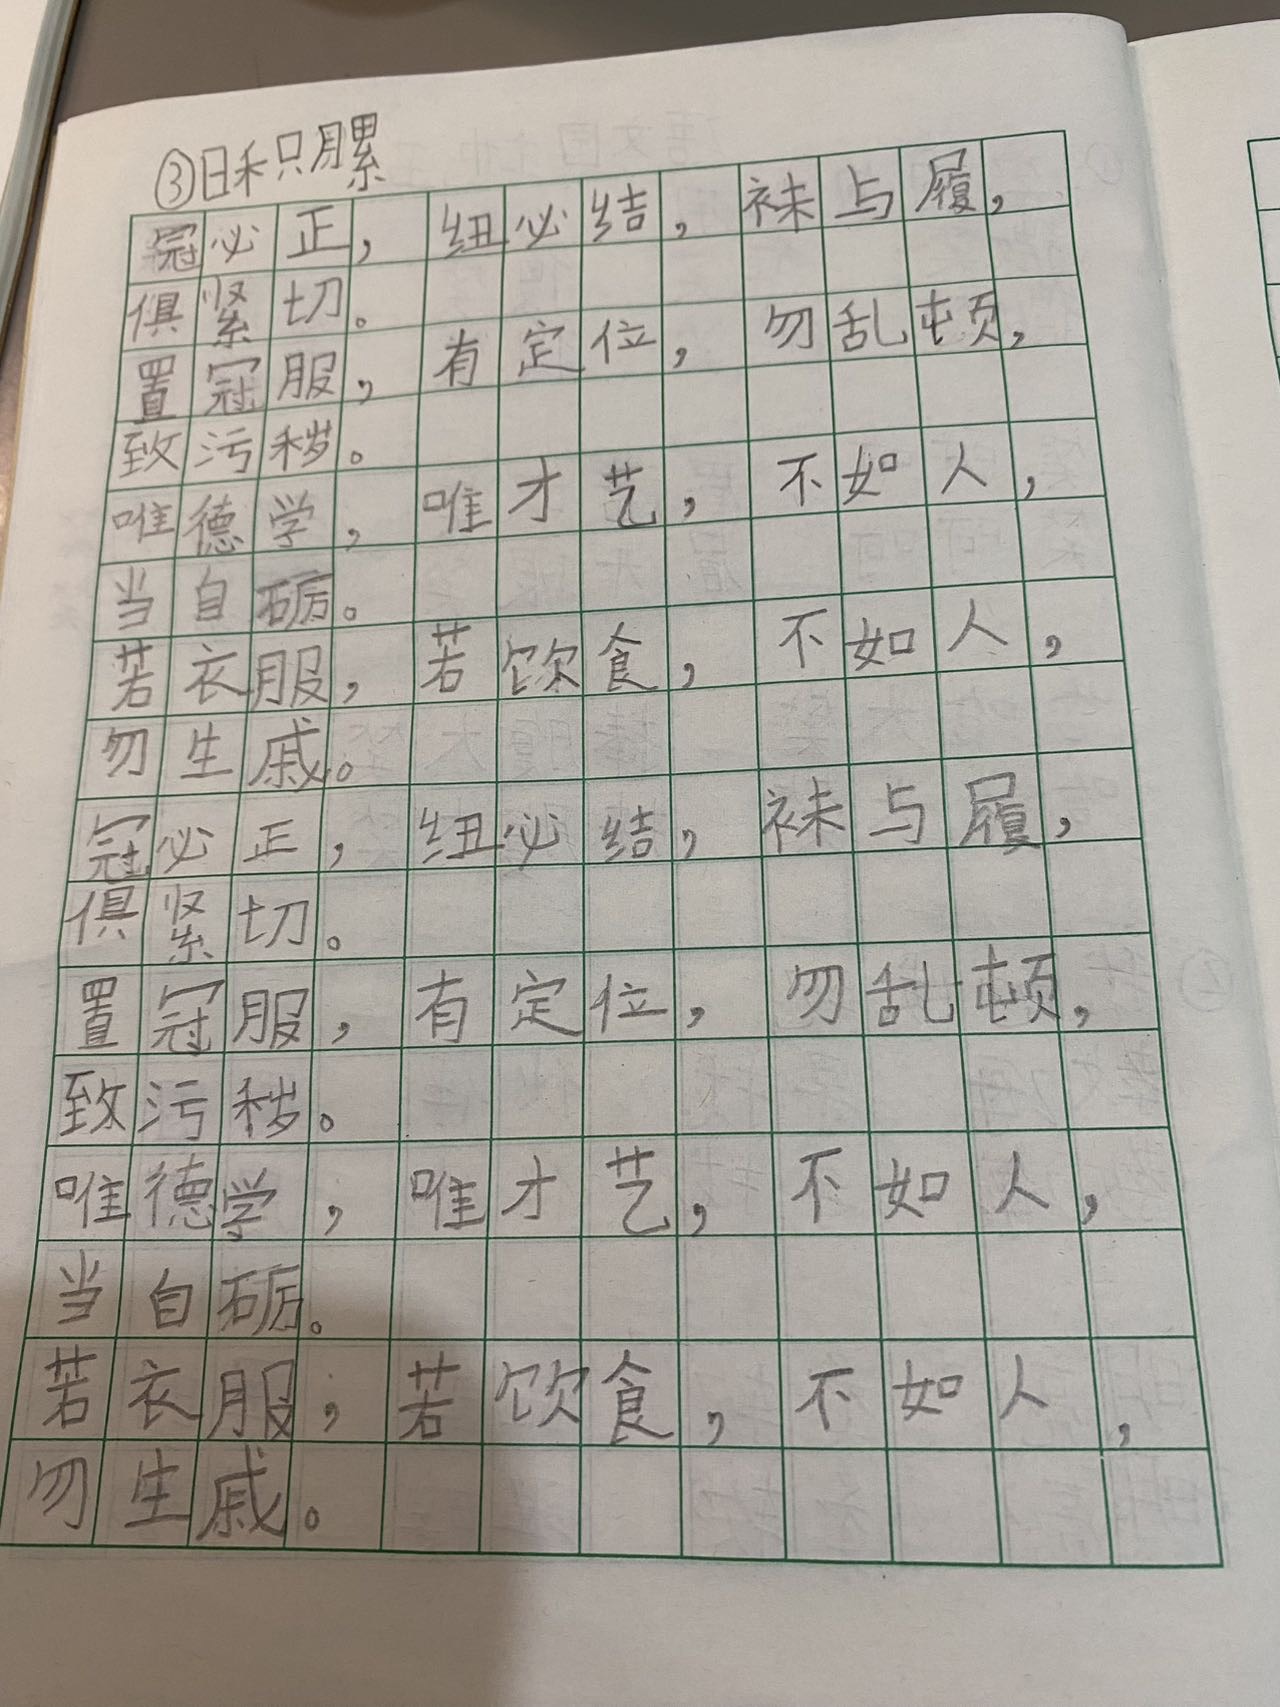 ③日积月累
冠必正，纽必结，袜与履，
俱紧切。
置冠服，有定位，勿乱顿，
致污秽。
唯德学，唯才艺，不如人，
当自砺。
若衣服，若饮食，不如人，
勿生戚。
冠必正，纽必结，袜与履，
俱紧切。
置冠服，有定位，勿乱顿，
致污秽。
唯德学，唯才艺，不如人，
当自砺。
若衣服，若饮食，不如人，
勿生戚。